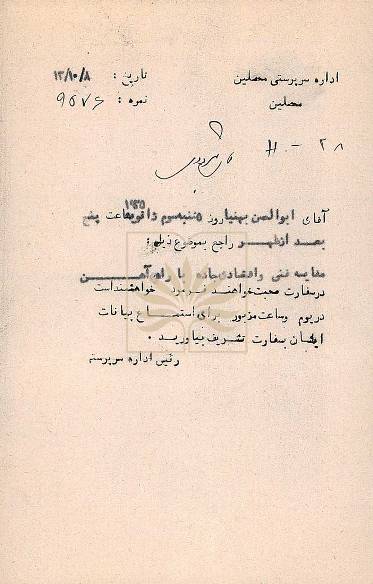 اداره سرپرستی محصلین
محصلین
تاریخ : ۱۳/۱۰/۸
نمره : ۹۵۷۶
۲۸ - H
۱۹۳۵
آقای ابوالحسن بهنیا روز شنبه سوم ژانویه ساعت پنج
بعد از ظهر راجع بموضوع ذیل :
مقایسه فنی و اقتصادی جاده با راه آهن
در سفارت صحبت خواهند فرمود خواهشمند است
در یوم و ساعت مزبور برای استماع بیانات
ایشان بسفارت تشریف بیاورید .
رئیس اداره سرپرستی